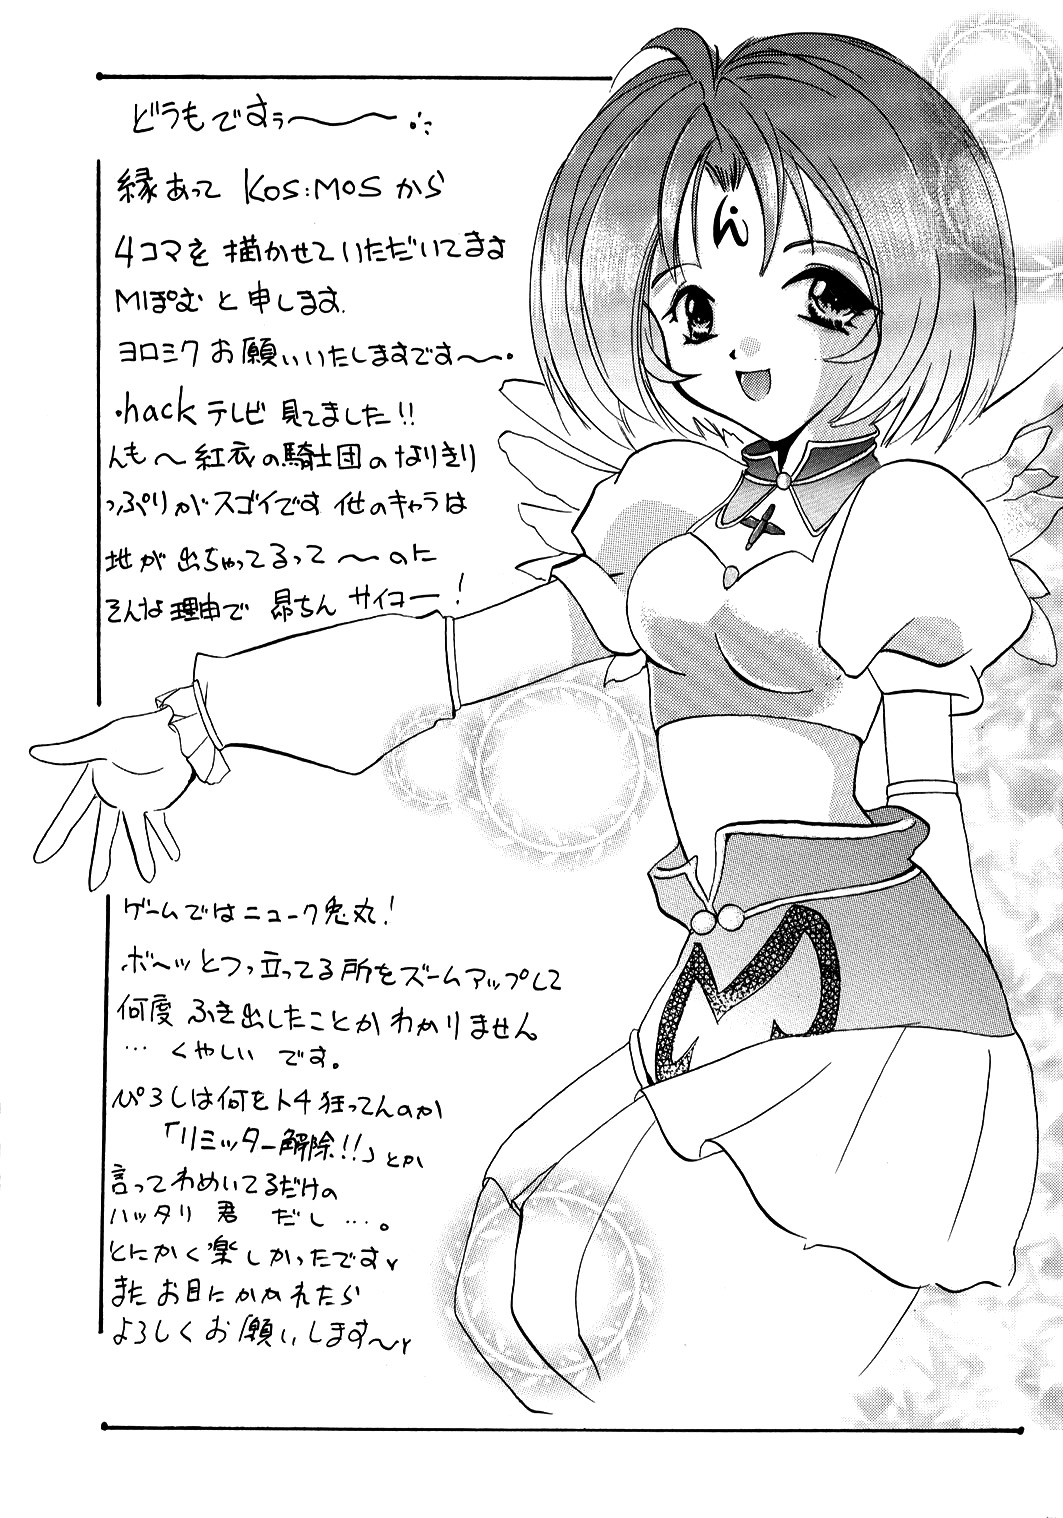 どうもですぅ〜〜
縁あって KOS:MOSから
4コマを 描かせていただいてます
M1ぽむ と 申します.
ヨロシク お願いいたしますです〜.
.hack テレビ 見てました!!
んも〜 紅衣の騎士団のなりきり
っぷりがスゴイです 他のキャラは
地が 出ちゃってるって〜のに
そんな理由で 昴ちん サイコー!
ゲームではニューク兎丸!
ボ〜ッとつっ立ってる所をズームアップして
何度 ふき出したことかわかりません
… くやしい です。
ぴろしは何をトチ狂ってんのか
「リミッター解除!!」とか
言ってわめいてるだけの
ハッタリ 君 だし …。
とにかく楽しかったです
また お目にかかれたら
よろしくお願いします〜